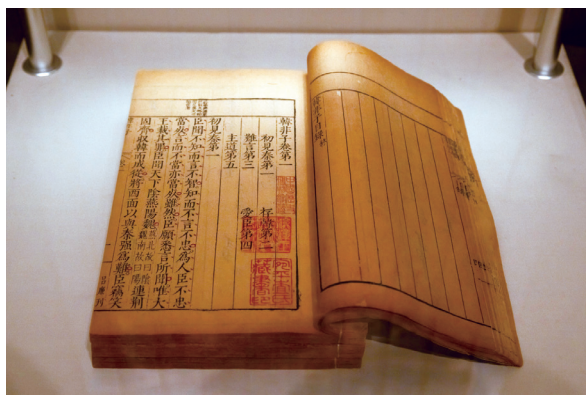 韓非子目錄
韓非子卷第一
初見秦第一 存韓第二
難言第三 愛臣第四
主道第五
初見秦第一
臣聞不知而言不智知而不言不忠為人臣不忠
當死言而不當亦當死雖然臣願悉言所聞唯大
王裁其罪臣聞天下陰燕陽魏燕北故曰陰魏南故曰陽連荊
固齊收韓而成從將西面以與秦強為難臣竊笑